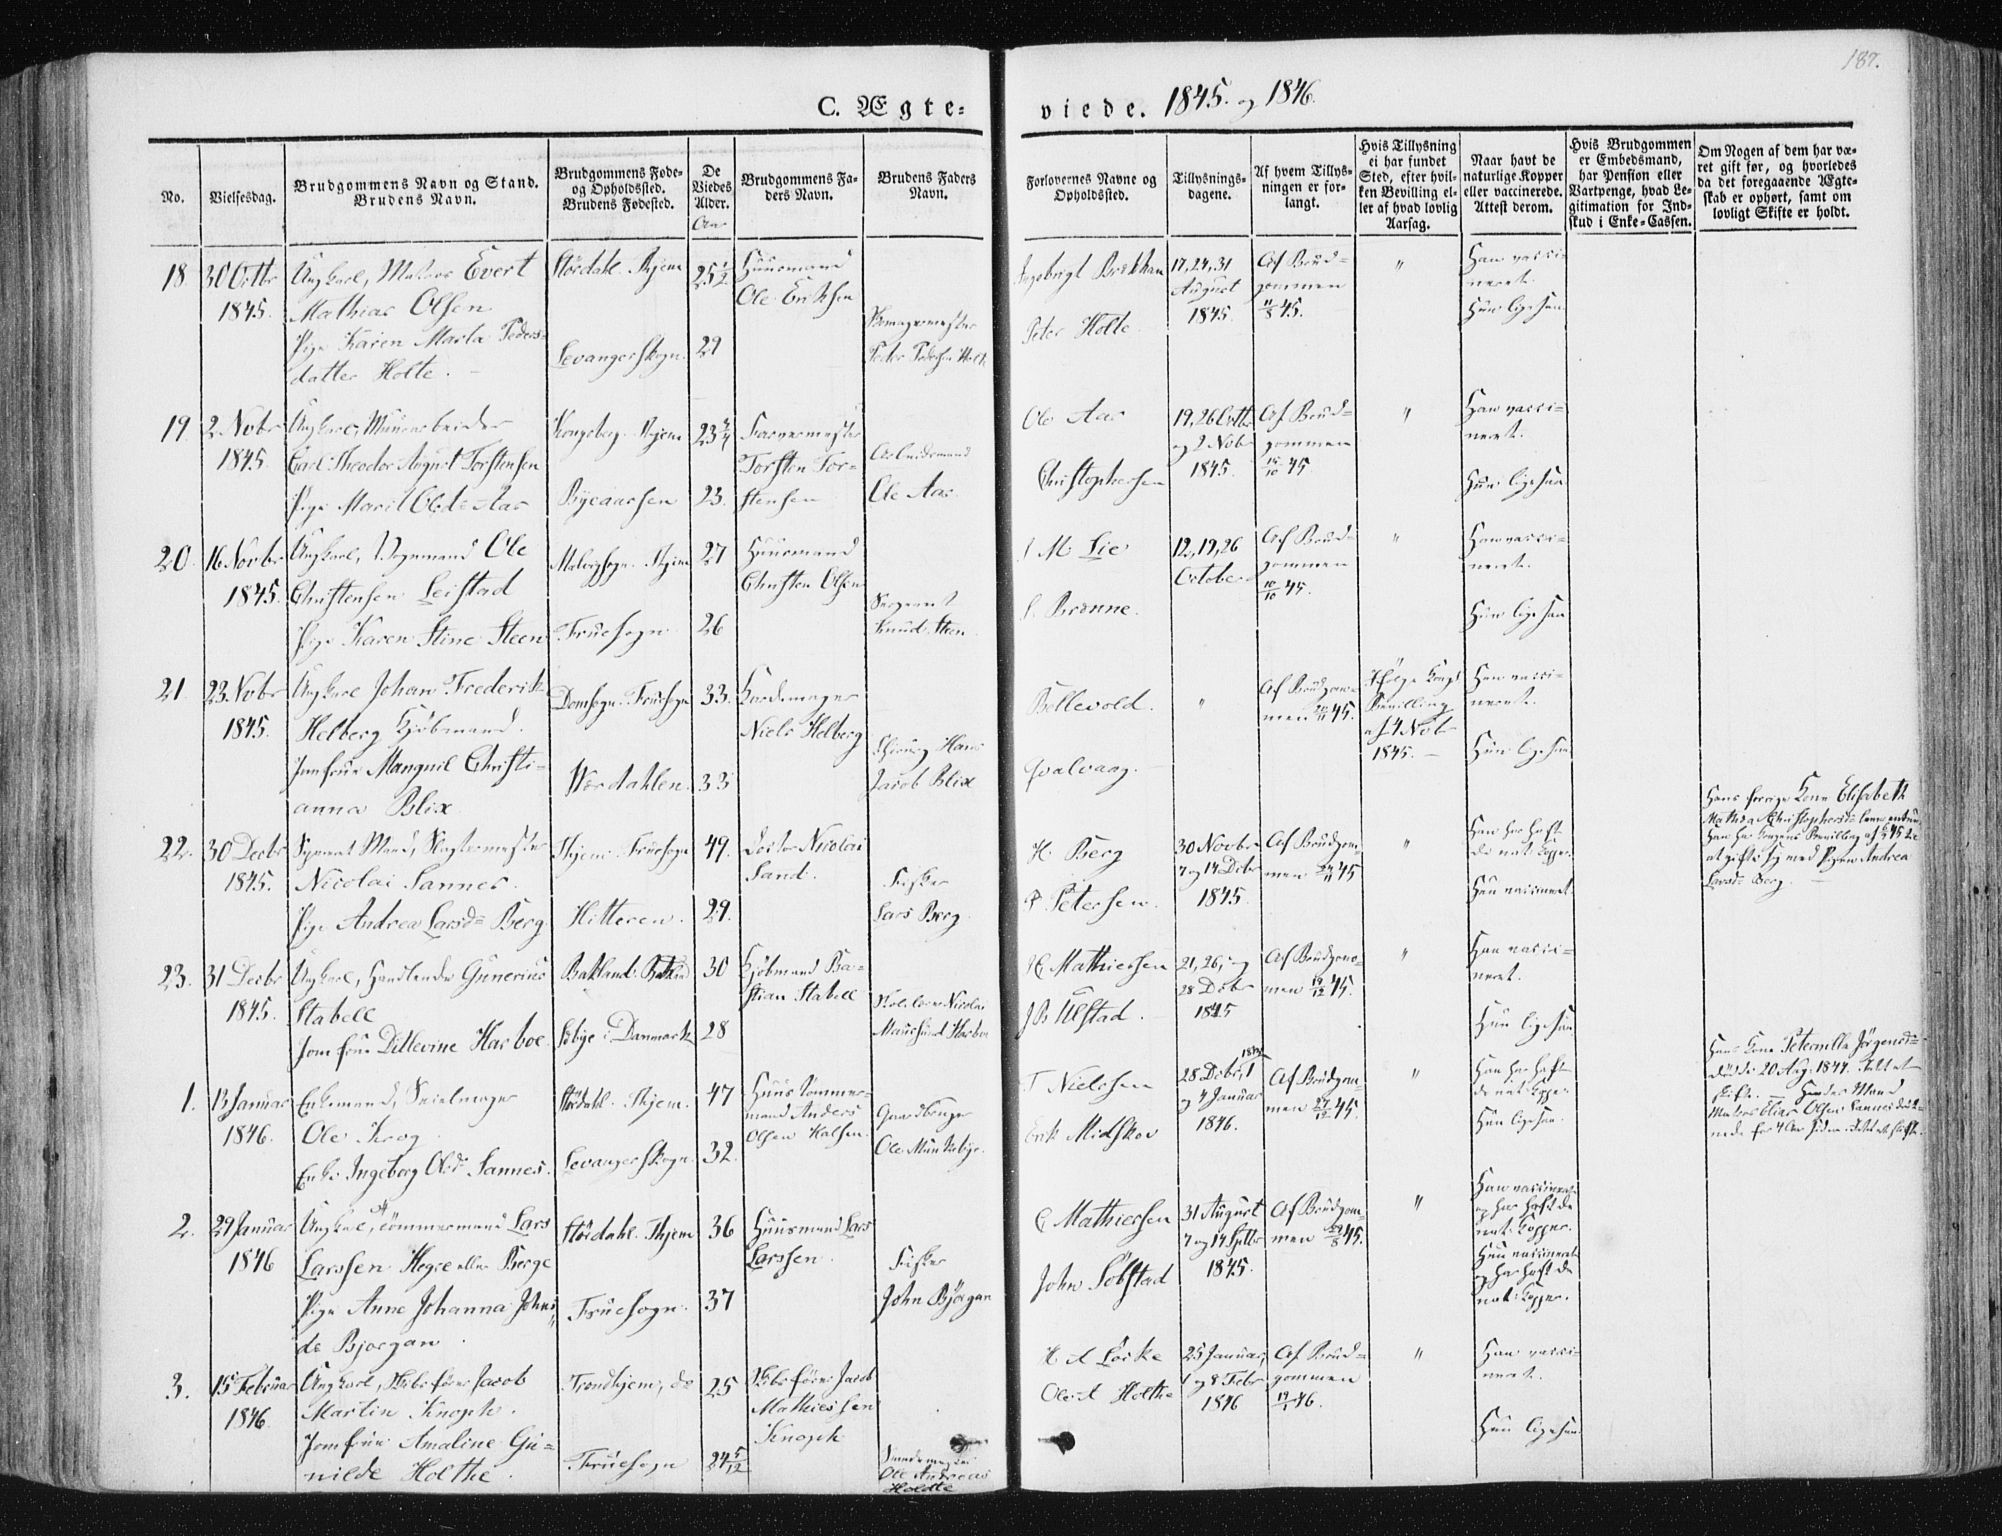 187.
C. Ægte=
viede. 1845. og 1846.
No.
Vielsesdag.
Brudgommens Navn og Stand.
Brudens Navn.
Brudgommens Føde-
og Opholdssted.
Brudens Fødested.
De
Viedes
Alder.
Aar
Brudgommens Fa-
ders Navn.
Brudens Faders
Navn.
Forlovernes Navne og
Opholdssted.
Tillysnings-
dagene.
Af hvem Tillys-
ningen er for-
langt.
Hvis Tillysning
ei har fundet
Sted, efter hvil-
ken Bevilling el-
ler af hvad lovlig
Aarsag.
Naar havt de
naturlige Kopper
eller vaccinerede.
Attest derom.
Hvis Brudgommen
er Embedsmand,
har Pension eller
Vartpenge, hvad Le-
gitimation for Ind-
skud i Enke=Cassen.
Om Nogen af dem har væ-
ret gift før, og hvorledes
da det foregaaende Ægte-
skab er ophørt, samt om
lovligt Skifte er holdt.
18.
30 Octbr
1845.
Ungkarl, Matros Evert
Mathias Olsen
Pige Karen Marta Peders-
datter Holte.
Størdahl. Thjem
Levanger Skogn.
25 1/2
29
Huusmand
Ole Eriksen
Peder Pedersen Holte
Ingebrigt Brækhan
Peter Holte
17, 24, 31
August
1845.
Af Brud=
gommen
11/8 45.
"
Han vacci-
neret.
Hun ligesaa
19.
2 Novbr
1845.
Ungkarl, Muurarbeider
Carl Theodor August Torstensen
Pige Marit Olsd= Aas
Kongsberg. Thjem
Byeaasen
23 3/4
23.
Farvermester
Torsten Tor=
stensen
Arbeidsmand
Ole Aas.
Ole Aas
Christophersen
19, 26 Octbr
og 2 Novbr
1845.
Af Brud=
gommen
15/10 45
"
Han vacci=
neret.
Hun ligesaa
20.
16 Novbr
1845.
Ungkarl, Vognmand Ole
Christensen Leistad
Pige Karen Stine Steen
Malvigsogn. Thjem
Fruesogn
27
26
Huusmand
Christen Olsen
Sergeant
Knud Steen
M. Lie
Brønne.
12, 19, 26
October
Af Brud=
gommen
10/10 45.
"
Han vacci=
neret.
Hun ligesaa
21.
23. Novbr
1845.
Ungkarl Johan Frederik
Helberg Kjøbmand.
Jomfrue Manguil Christi-
anna Blix
Domsogn. Fruesogn
Værdahlen.
33.
33
Kordemager
Niels Helberg
Chirurg Hans
Jacob Blix
Bollevold.
Qvalvang.
"
Af Brudgom-
men 20/11 45.
Ifølge Kongl
Bevilling
af 4 Novbr
1845.
Han vacci-
neret.
Hun ligesaa
22.
30 Decbr
1845.
Separeret Mand, Slagtermester
Nicolai Sannes.
Pige Andrea Larsd= Berg
Thjem. Fruesogn
Hitteren.
49.
29.
Nicolai
Sand.
Fisker
Lars Berg.
H. Berg
P. Petersen.
30 Novbr
7 og 14 Decbr
1845.
Af Brudgom-
men 24/11 45
"
Han har haft
de nat. Kopper.
Hun vaccineret.
Hans forrige Kone Elisabeth
at gifte sig med Pigen Andrea
Larsd= Berg.
23.
31 Decbr
1845.
Ungkarl, Handlende Gunerius
Stabell
Jomfrue Ditlevine Harboe
Bakland. Bakland
Sæbye i Danmark
30
28
Kjøbmand Ba-
stian Stabell
Nicolai
Harboe
H. Mathiessen
J B Ulstad.
21, 26, og
28 Decbr
1845
Af Brudgom-
men 19/12 45.
"
Han vacci-
neret.
Hun ligesaa
1.
13 Januar
1846.
Enkemand, Seielmager
Ole Krog
Enke Ingeborg Olsd= Sannes.
Størdahl. Thjem.
Levanger Skogn.
47
32.
Huustømmer-
mand Anders
Olsen Halsen.
Gaardbruger
Ole Munkebye.
T Nielssen
Erik Midskov
28 Decbr, 1
og 4 Januar
1846.
Af Brudgom-
men 27/12 45.
"
Han har haft
de nat. Kopper.
Hun ligesaa.
Hans Kone Peternille Jørgensd=
døde 20 Aug. 1844.
Hendes Mand
Matros Elias Olsen Sannes
2.
29 Januar
1846
Ungkarl, Tømmermand Lars
Larssen Hegre eller Berge
Pige Anne Johanna Johns
de Bjørgan
Størdahl. Thjem
Fruesogn.
36
37
Huusmand Lars
Larssen.
Fisker
John Bjørgan
C Mathiessen
John Sølstad
31 August
7 og 14 Septbr
1845.
Af Brudgom-
men 29/8 45.
"
Han vaccineret
og har haft de
nat. Kopper.
Hun vaccineret
og har haft de
nat. Kopper.
3.
15 Februar
1846.
Ungkarl, Skibsfører Jacob
Martin Knoph.
Jomfrue Amaline Gu-
nilde Holthe.
Trondhjem, do
Fruesogn
25
24 5/12
Skibsfører Jacob
Mathiessen
Knoph
Ole Andreas
Holdte
H A Lørke
Ole A Holthe
25 Januar,
1 og 8 Febr
1846
Af Brud=
gommen
19/1 46.
"
Han vacci-
neret.
Hun ligesaa